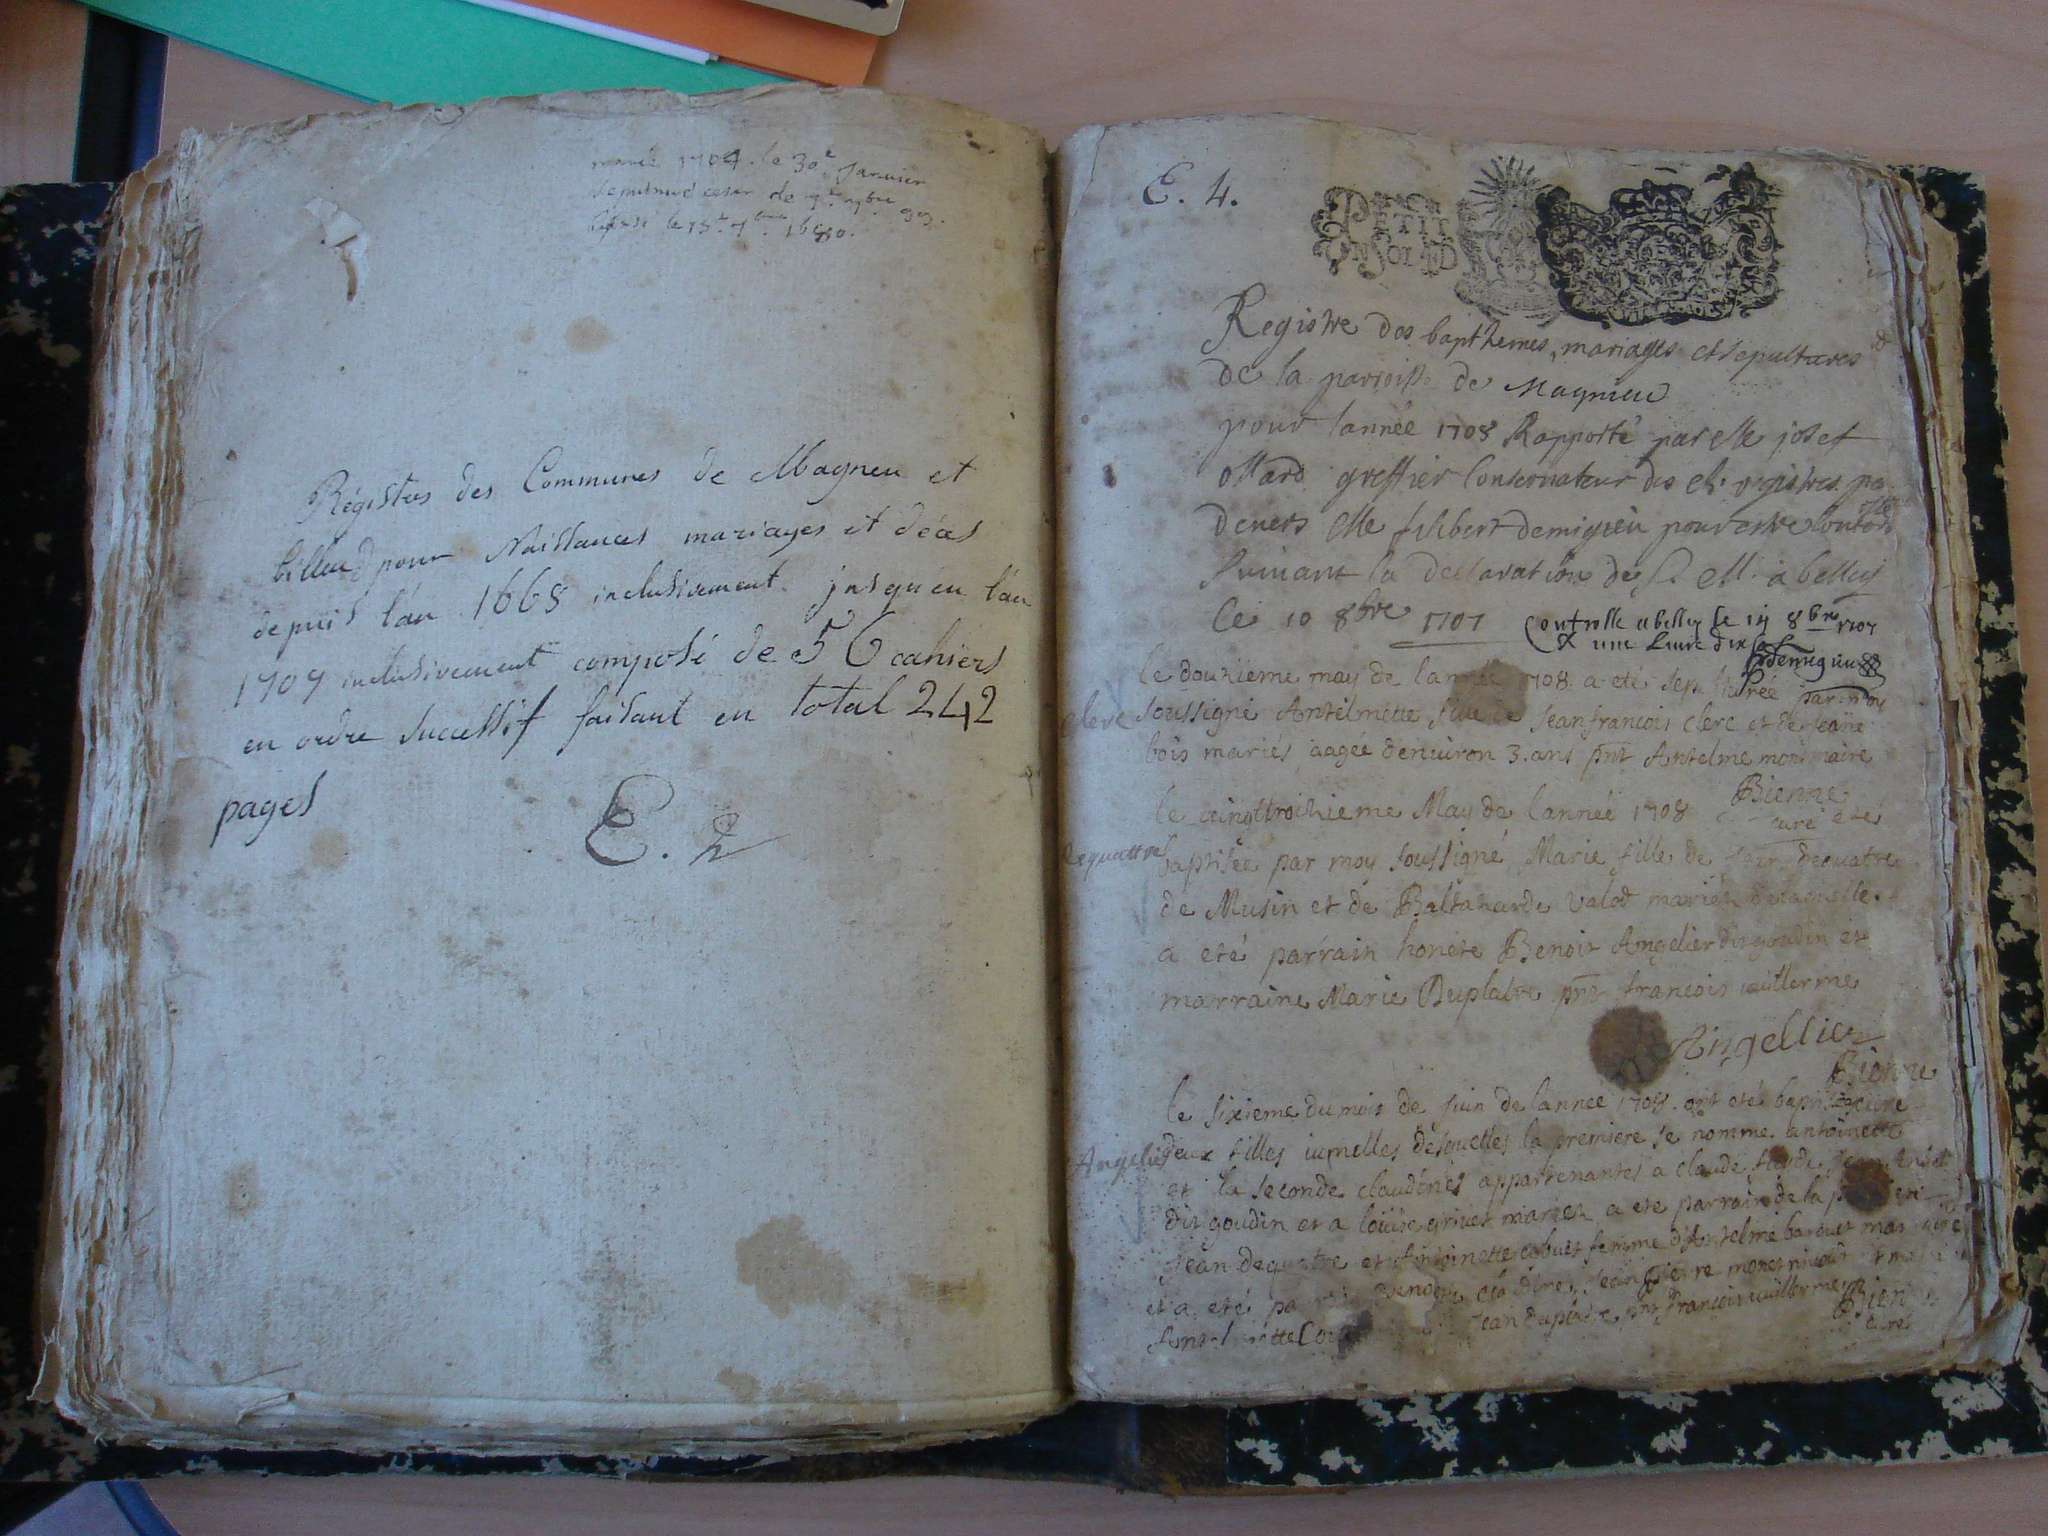 marié 1704. le 30e Janvier
le 15e 7bre 1680.
Régistres des Communes de Magneu et
billieu pour Naissances mariages et décès
depuis l'an 1668 inclusivement jusqu'en l'an
1707 inclusivement composé de 56 cahiers
en ordre successif faisant en total 242
pages
E. 2
E. 4.
PETIT
EN SOL D
Registre des bapthemes, mariages et sepultures
de la parroisse de Magnieu
pour lannée 1708 Rapporté par Me josef
ottard greffier Conservateur des registres
devers Me filibert demigieu pour estre
suivant la declaration de S. M. a belley
ce 10 8bre 1707
Controlle a belley le 14 8bre 1707
une livre dix s
Demigieu
le douzieme may de lannée 1708 a eté sepulturée par moy
clerc
soussigné Antelmette fille de Jean francois clerc et de Jeane
bois mariés aagée denviron 3. ans pnt Antelme monmaire
Bienne
curé
le vingttroizieme May de lannée 1708 a eté
dequattre
baptisée par moy soussigné Marie fille de Jean dequatre
de Musin et de Baltazarde Valod mariés de laquelle
a eté parrain honete Benoit Angelier dit goudin et
marraine Marie Duplatre pnt francois vuillerme
Angellier
Bienne
curé
le sixieme du mois de Juin de lannee 1708 ont eté baptisées
Angelier
deux filles iumelles desquelles la premiere se nomme antoinette
et la seconde claudine appartenantes a claude
dit goudin et a louise mariez a eté parrain de la
Jean dequatre et Antoinette cobuet femme d'Antelme
et a eté Jean pierre monet
Jean duplatre pnt francois vuillerme
Bienne
curé